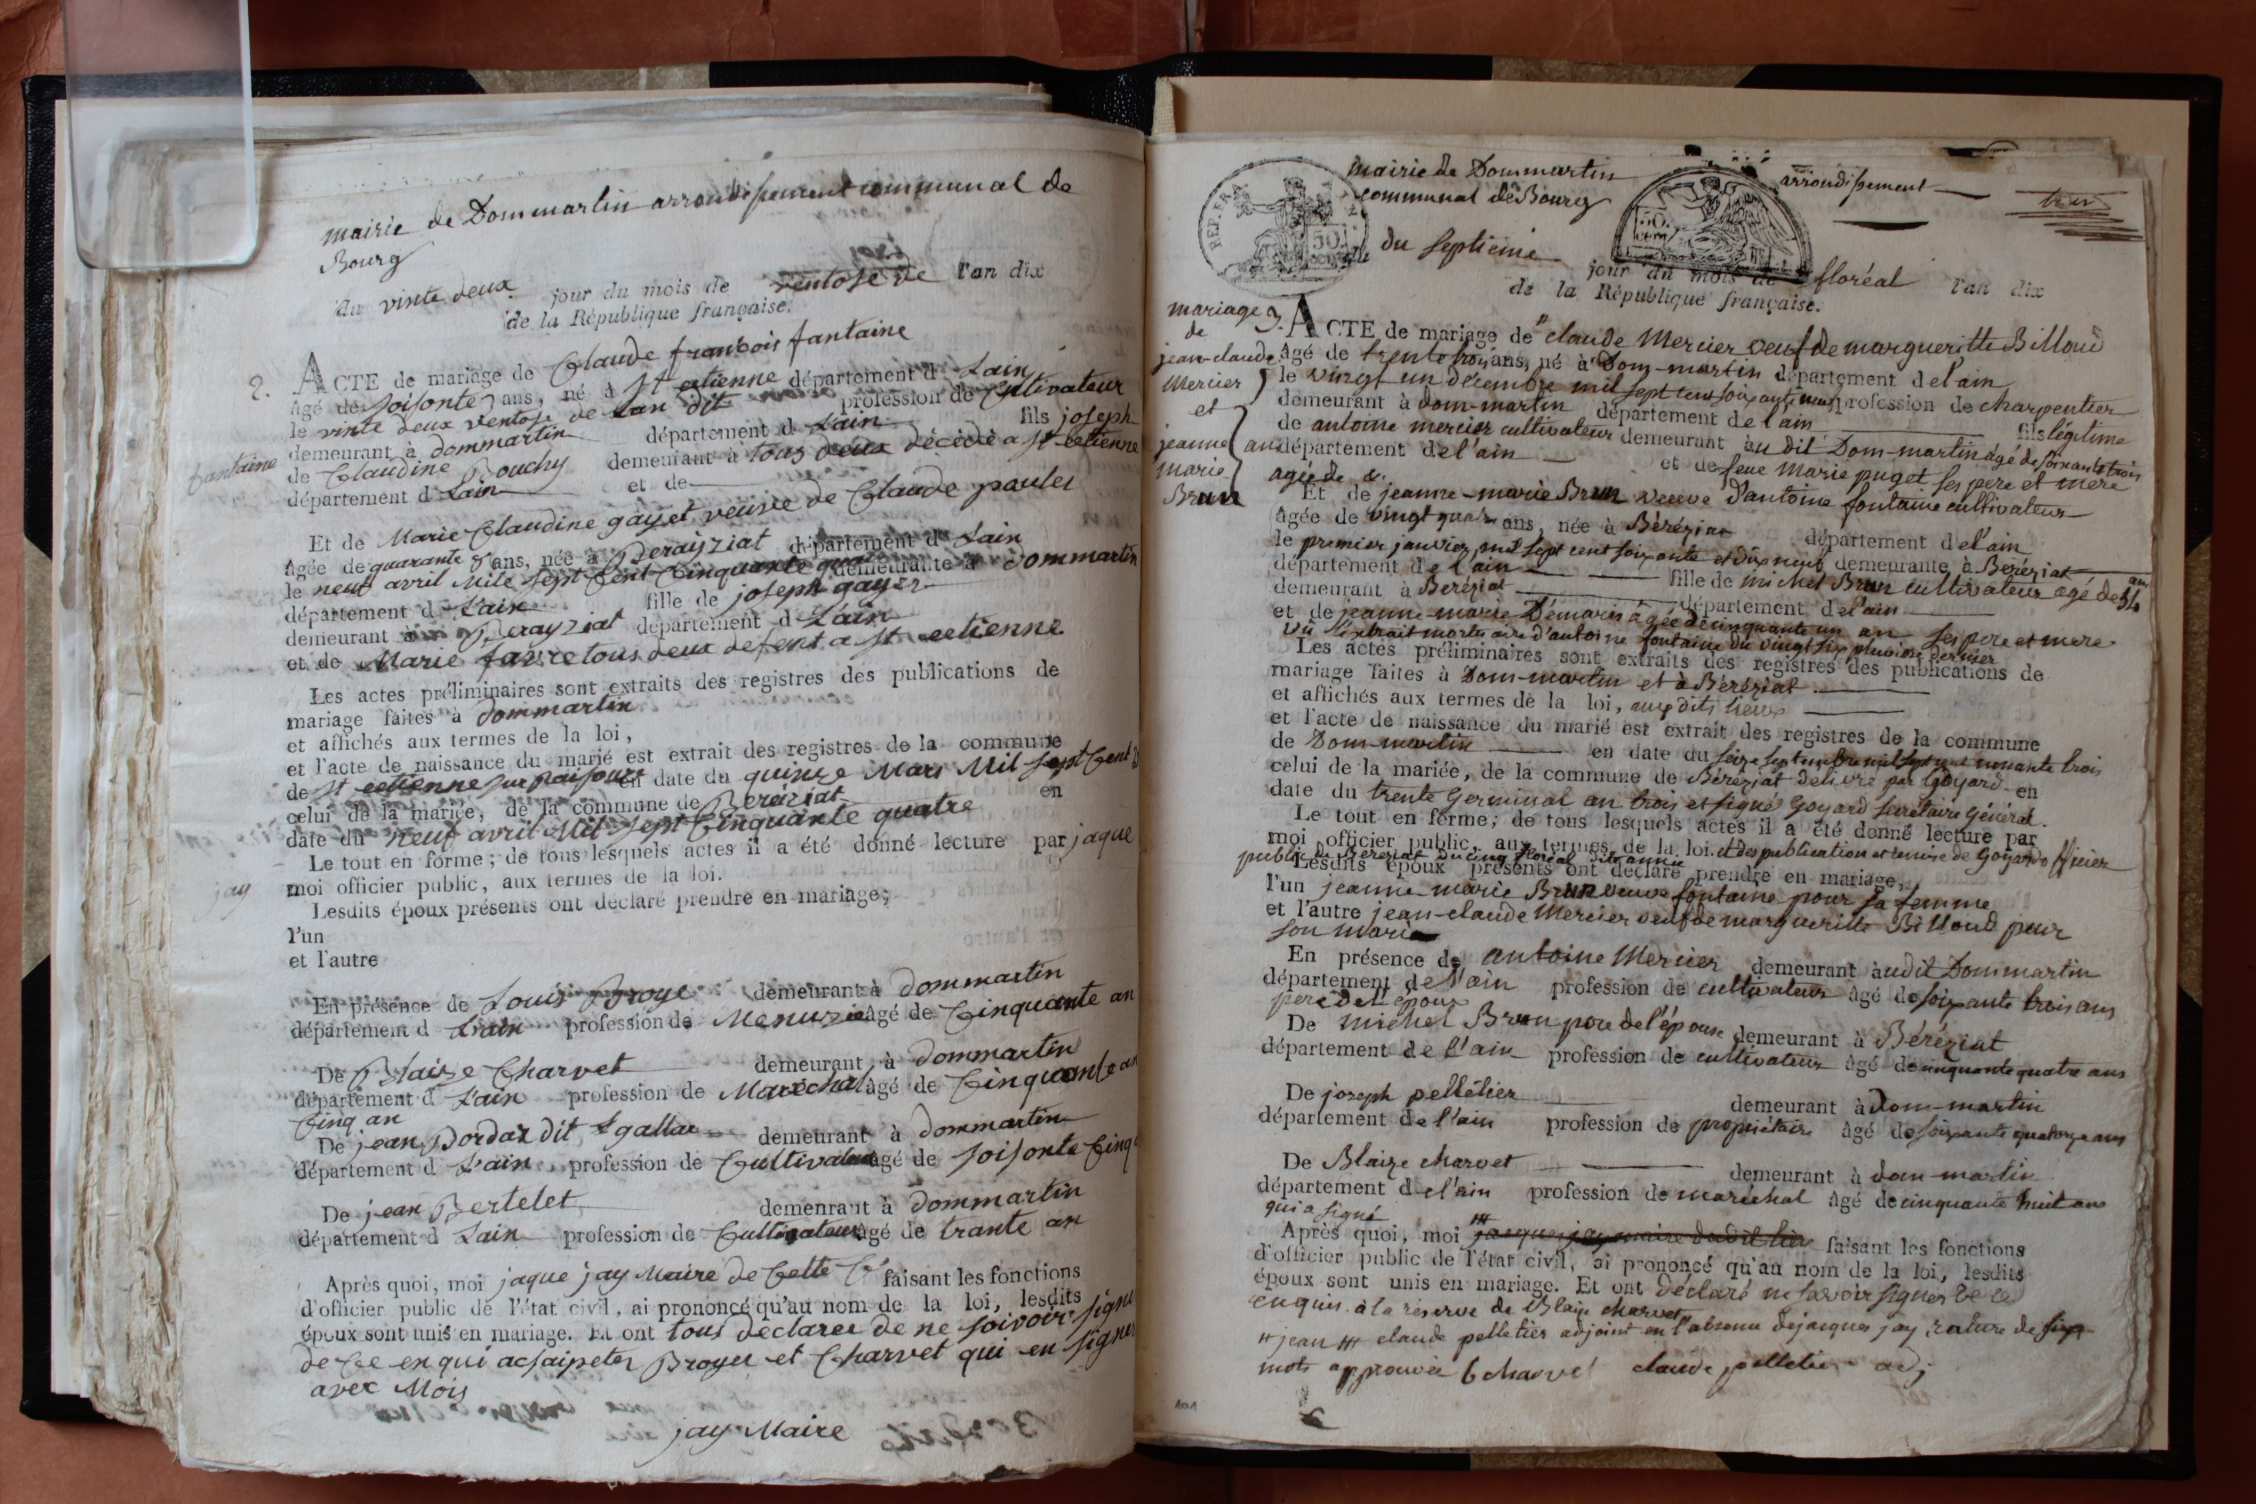 mairie de Dommartin arrondissement communal de
Bourg
du vinte deux jour du mois de ventose de l'an dix
de la République française.
2. ACTE de mariage de Claude francois fantaine
âgé de soisonte ans, né à St etienne département d Lain
le vinte deux ventose de Lan dit profession de Cultivateur
demeurant à dommartin département d Lain fils joseph
fantaine de Claudine Bouchy demeurant à tous deux décédé a st eetienne
département d Lain et de
Et de Marie Claudine gayet veuve de Claude paules
âgée de quarante 8 ans, née à Berayziat département d Lain
le neuf avril Mile sept Cent Cinquante quatre demeurante à dommartin
département d Lain fille de joseph gayer
demeurant à Berayziat département d Lain
et de Marie favre tous deux defent a st eetienne
Les actes préliminaires sont extraits des registres des publications de
mariage faites à dommartin
et affichés aux termes de la loi,
et l'acte de naissance du marié est extrait des registres de la commune
de st eetienne sur en date du quinze Mars Mil sept Cent
celui de la mariée, de la commune de Bereziat en
date du neuf avril Mil sept Cinquante quatre
Le tout en forme; de tous lesquels actes il a été donné lecture par jaque
jay moi officier public, aux termes de la loi.
Lesdits époux présents ont déclaré prendre en mariage;
l'un
et l'autre
En présence de Louis Broye demeurant à dommartin
département d Lain profession de Menuzie âgé de Cinquante an
De Blaize Charvet demeurant à dommartin
département d Lain profession de Maréchal âgé de Cinquante an
Cinq an
De jean Bordaz dit demeurant à dommartin
département d Lain profession de Cultivateur âgé de soisonte Cinq
De jean Bertelet demeurant à dommartin
département d Lain profession de Cultivateur âgé de trante an
Après quoi, moi jaque jay Maire de Cette faisant les fonctions
d'officier public de l'état civil, ai prononcé qu'au nom de la loi, lesdits
époux sont unis en mariage. Et ont tous declaree de ne soivoir signe
de Ce en qui Broyer et Charvet qui en signer
avec Mois
jay Maire
mairie de Dommartin arrondissement
communal de Bourg
REP. FRA
50
50
du septieme jour du mois de floréal l'an dix
de la République française.
mariage
de
jean-claude
Mercier
et
jeanne
marie
Brun
3. ACTE de mariage de claude Mercier veuf de margueritte Billoud
âgé de trente trois ans, né à Dom-martin département de l'ain
le vingt un décembre mil sept cent soixante neuf profession de charpentier
demeurant à dom-martin département de l'ain fils légitime
de antoine mercier cultivateur demeurant au dit Dom-martin âgé de soixante trois
an département de l'ain et de feue Marie puget ses pere et mere
agée de &.
Et de jeanne-marie Brun veuve d'antoine fontaine cultivateur
âgée de vingt quatre ans, née à Béréziat département de l'ain
le premier janvier mil sept cent soixante et dix neuf demeurante à Béréziat
département de l'ain fille de michel Brun cultivateur agé de 54 ans
demeurant à Béréziat département de l'ain
et de jeanne-marie Démaris âgée de cinquante un an ses pere et mere
vû l'extrait mortuaire d'antoine fontaine du vingt six pluviose dernier
Les actes préliminaires sont extraits des registres des publications de
mariage faites à Dom-martin et à Béréziat
et affichés aux termes de la loi, auxdits lieux
et l'acte de naissance du marié est extrait des registres de la commune
de Dom-martin en date du seize septembre mil sept cent nonante trois
celui de la mariée, de la commune de Béréziat délivré par Goyard en
date du trente Germinal an trois et signé Goyard secrétaire Général.
Le tout en forme; de tous lesquels actes il a été donné lecture par
moi officier public, aux termes de la loi. et des publication et remise de Goyard officier
public de Béréziat du cinq floréal dite année
Lesdits époux présents ont déclaré prendre en mariage,
l'un jeanne marie Brun veuve fontaine pour sa femme
et l'autre jean-claude Mercier veuf de margueritte Billoud pour
son mari
En présence de antoine Mercier demeurant audit Dommartin
département de l'ain profession de cultivateur âgé de soixante trois ans
pere de l'époux
De michel Brun pere de l'épouse demeurant à Béréziat
département de l'ain profession de cultivateur âgé de cinquante quatre ans
De joseph pelletier demeurant à Dom-martin
département de l'ain profession de propriétaire âgé de soixante quatorze ans
De Blaize charvet demeurant à dom-martin
département de l'ain profession de maréchal âgé de cinquante huit ans
qui a signé
Après quoi, moi jacques jay maire dudit lieu faisant les fonctions
d'officier public de l'état civil, ai prononcé qu'au nom de la loi, lesdits
époux sont unis en mariage. Et ont déclaré ne savoir signer de ce
enquis. à la réserve de Blaize charvet
# jean ## claude pelletier adjoint en l'absence de jacques jay rature de six
mots approuvée b charvet claude pelletier adj
101